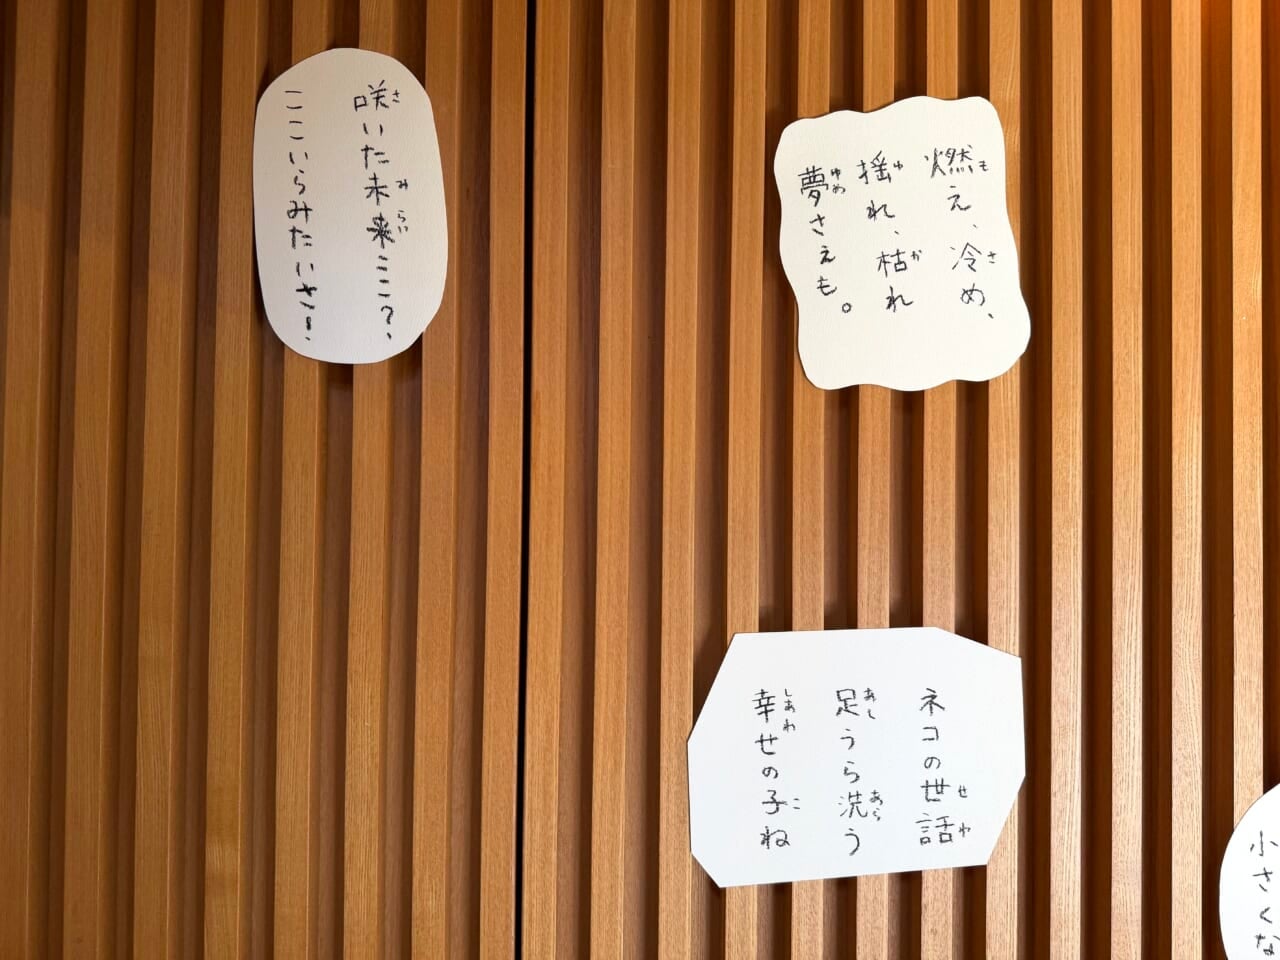 さ み らい
咲いた未来ここ?、
ここいらみたいさ!、
も さ
燃え、冷め、
ゆ か
揺れ、枯れ
ゆめ
夢さえも。
せ わ
ネコの世話
あし あら
足うら洗う
しあわ こ
幸せの子ね
小さくな